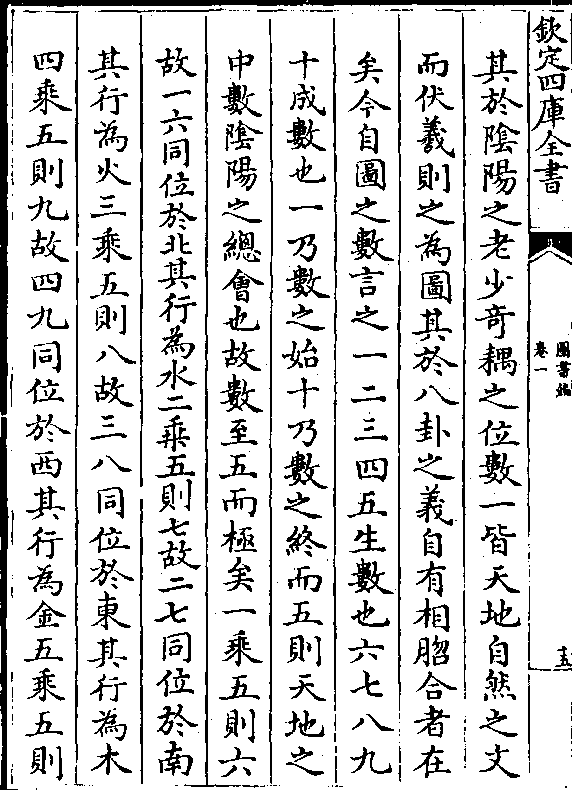 欽定四庫全書
圖書編
卷一
十五
其於陰陽之老少奇耦之位數一皆天地自然之文
而伏羲則之為圖其於八卦之義自有相脗合者在
矣今自圖之數言之一二三四五生數也六七八九
十成數也一乃數之始十乃數之終而五則天地之
中數陰陽之總會也故數至五而極矣一乘五則六
故一六同位於北其行為水二乘五則七故二七同位於南
其行為火三乘五則八故三八同位於東其行為木
四乘五則九故四九同位於西其行為金五乘五則